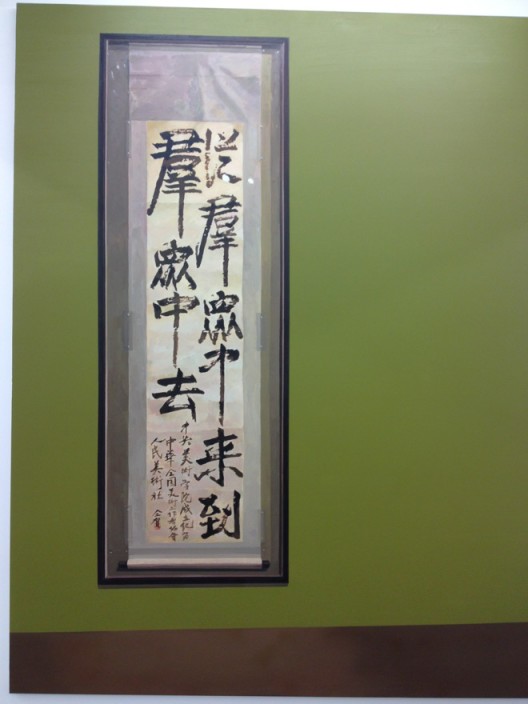 從羣眾中来到
羣眾中去
中央美術学院成立纪念
中華全国美術工作者協會
人民美術社 仝賀